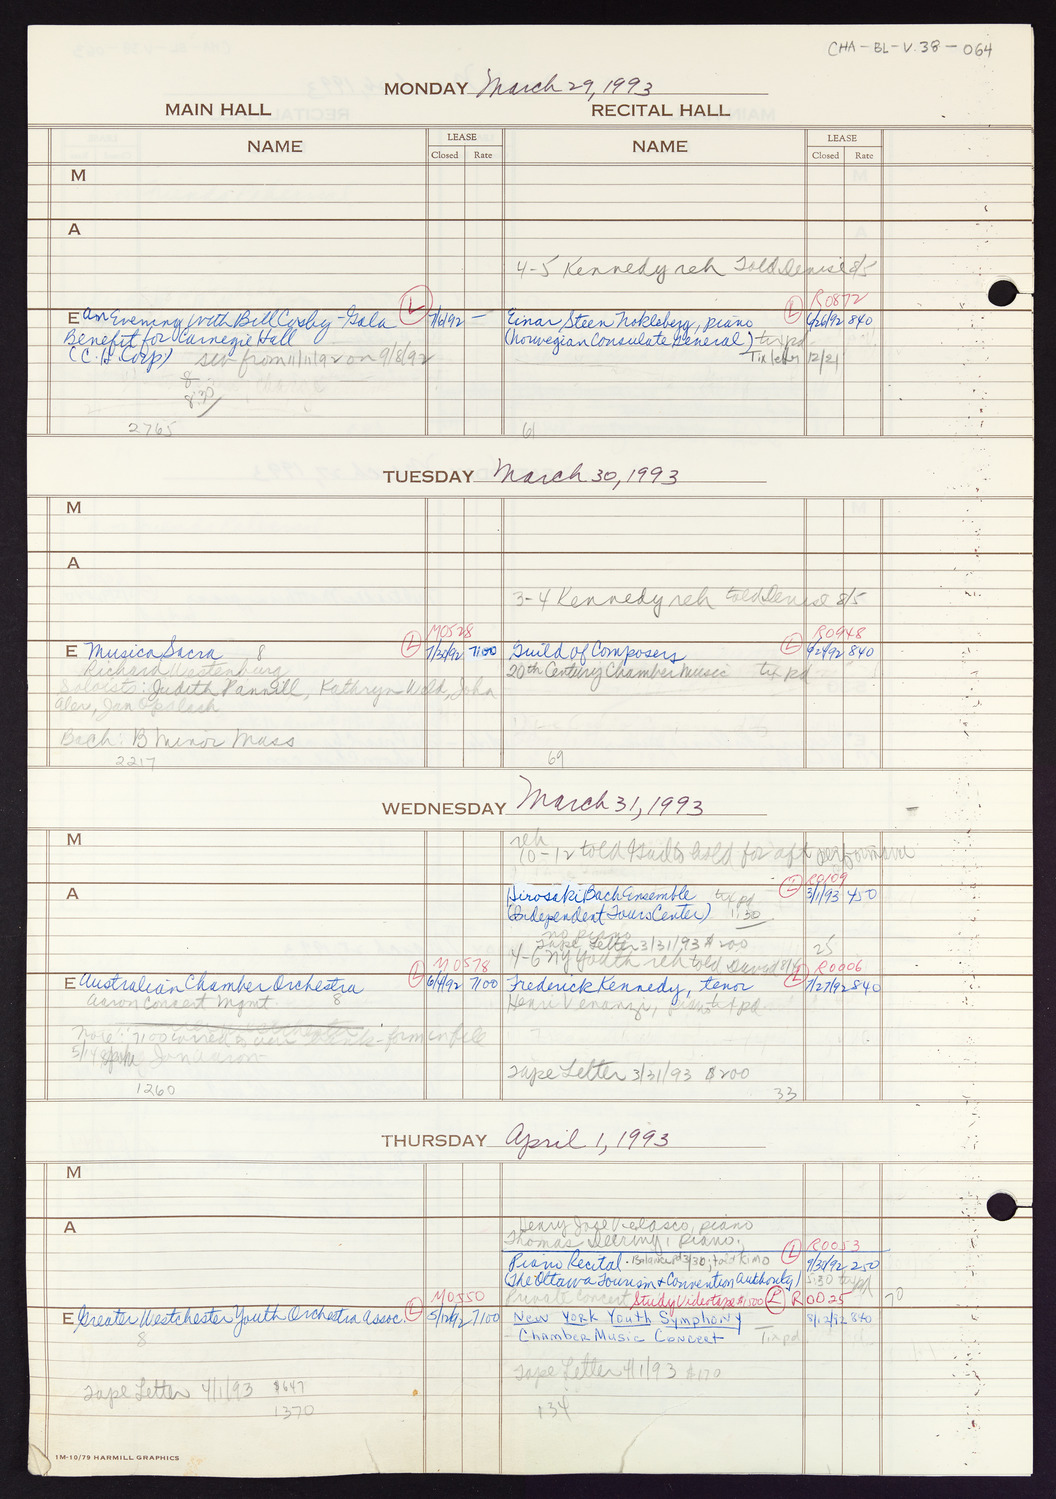 CHA-BL-V.38-064
MONDAY March 29, 1993
MAIN HALL
RECITAL HALL
NAME
LEASE
Closed Rate
NAME
LEASE
Closed Rate
M
A
4-5 Kennedy reh Told Denise 8/5
R0872
E An Evening with Bill Cosby - Gala
L
7/6/92 -
Benefit for Carnegie Hall
(C.H. Corp) sw from 11/11/92 on 9/8/92
8
8:30
2765
Einar Steen Nokleberg, piano
L
6/26/92 840
(Norwegian Consulate General) tix pd
Tix letter 12/21
61
TUESDAY March 30, 1993
M
A
3-4 Kennedy reh told Denise 8/5
M0528
R0948
E Musica Sacra 8
L
7/30/92 7100
Richard Westenburg
Soloists: Judith Pannill, Kathryn John
Aler, Jan Opalach
Bach: B Minor Mass
2217
Guild of Composers
L
840
20th Century Chamber Music tix pd
69
WEDNESDAY March 31, 1993
M
reh
10-12 told hold for aft performance
A
R0109
Hirosaki Bach Ensemble tix pd
L
3/1/93 450
(Independent Tours Center) 1:30
no piano
Tape Letter 3/31/93 $200
25
4-6 NY Youth reh told David 8/6
M0578
R0006
E Australian Chamber Orchestra
L
6/9/92 7100
Aaron Concert Mgmt 8
Note: 7100 form in file
5/14 spoke Jon Aaron
1260
Frederick Kennedy, tenor
L
7/27/92 840
Henri Venanzi, piano tix pd
Tape Letter 3/31/93 $200
33
THURSDAY April 1, 1993
M
A
Henry Jose Velasco, piano
Thomas Deering, piano,
R0053
Piano Recital - Balance pd 3/30, told Kimo
L
9/30/92 250
(The Ottawa Tourism & Convention Authority) 5:30 tix pd
Private Concert Study Videotape $1500
L
R0025
70
M0550
E Greater Westchester Youth Orchestra Assoc.
L
5/12/92 7100
8
Tape Letter 4/1/93 $647
1370
New York Youth Symphony
5/12/92 840
Chamber Music Concert Tix pd
Tape Letter 4/1/93 $170
134
1M-10/79 HARMILL GRAPHICS